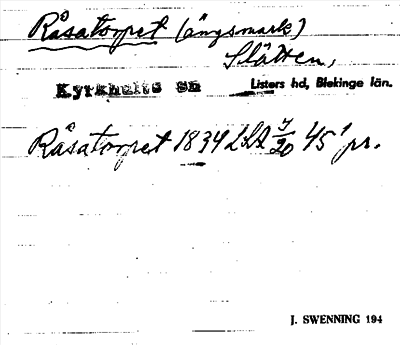 Råsatorpet (ängsmark)
Slätten,
Kyrkhults sn Listers hd, Blekinge län.
Råsatorpet 1834 LSA 7/20 45' pr.
J. SWENNING 194